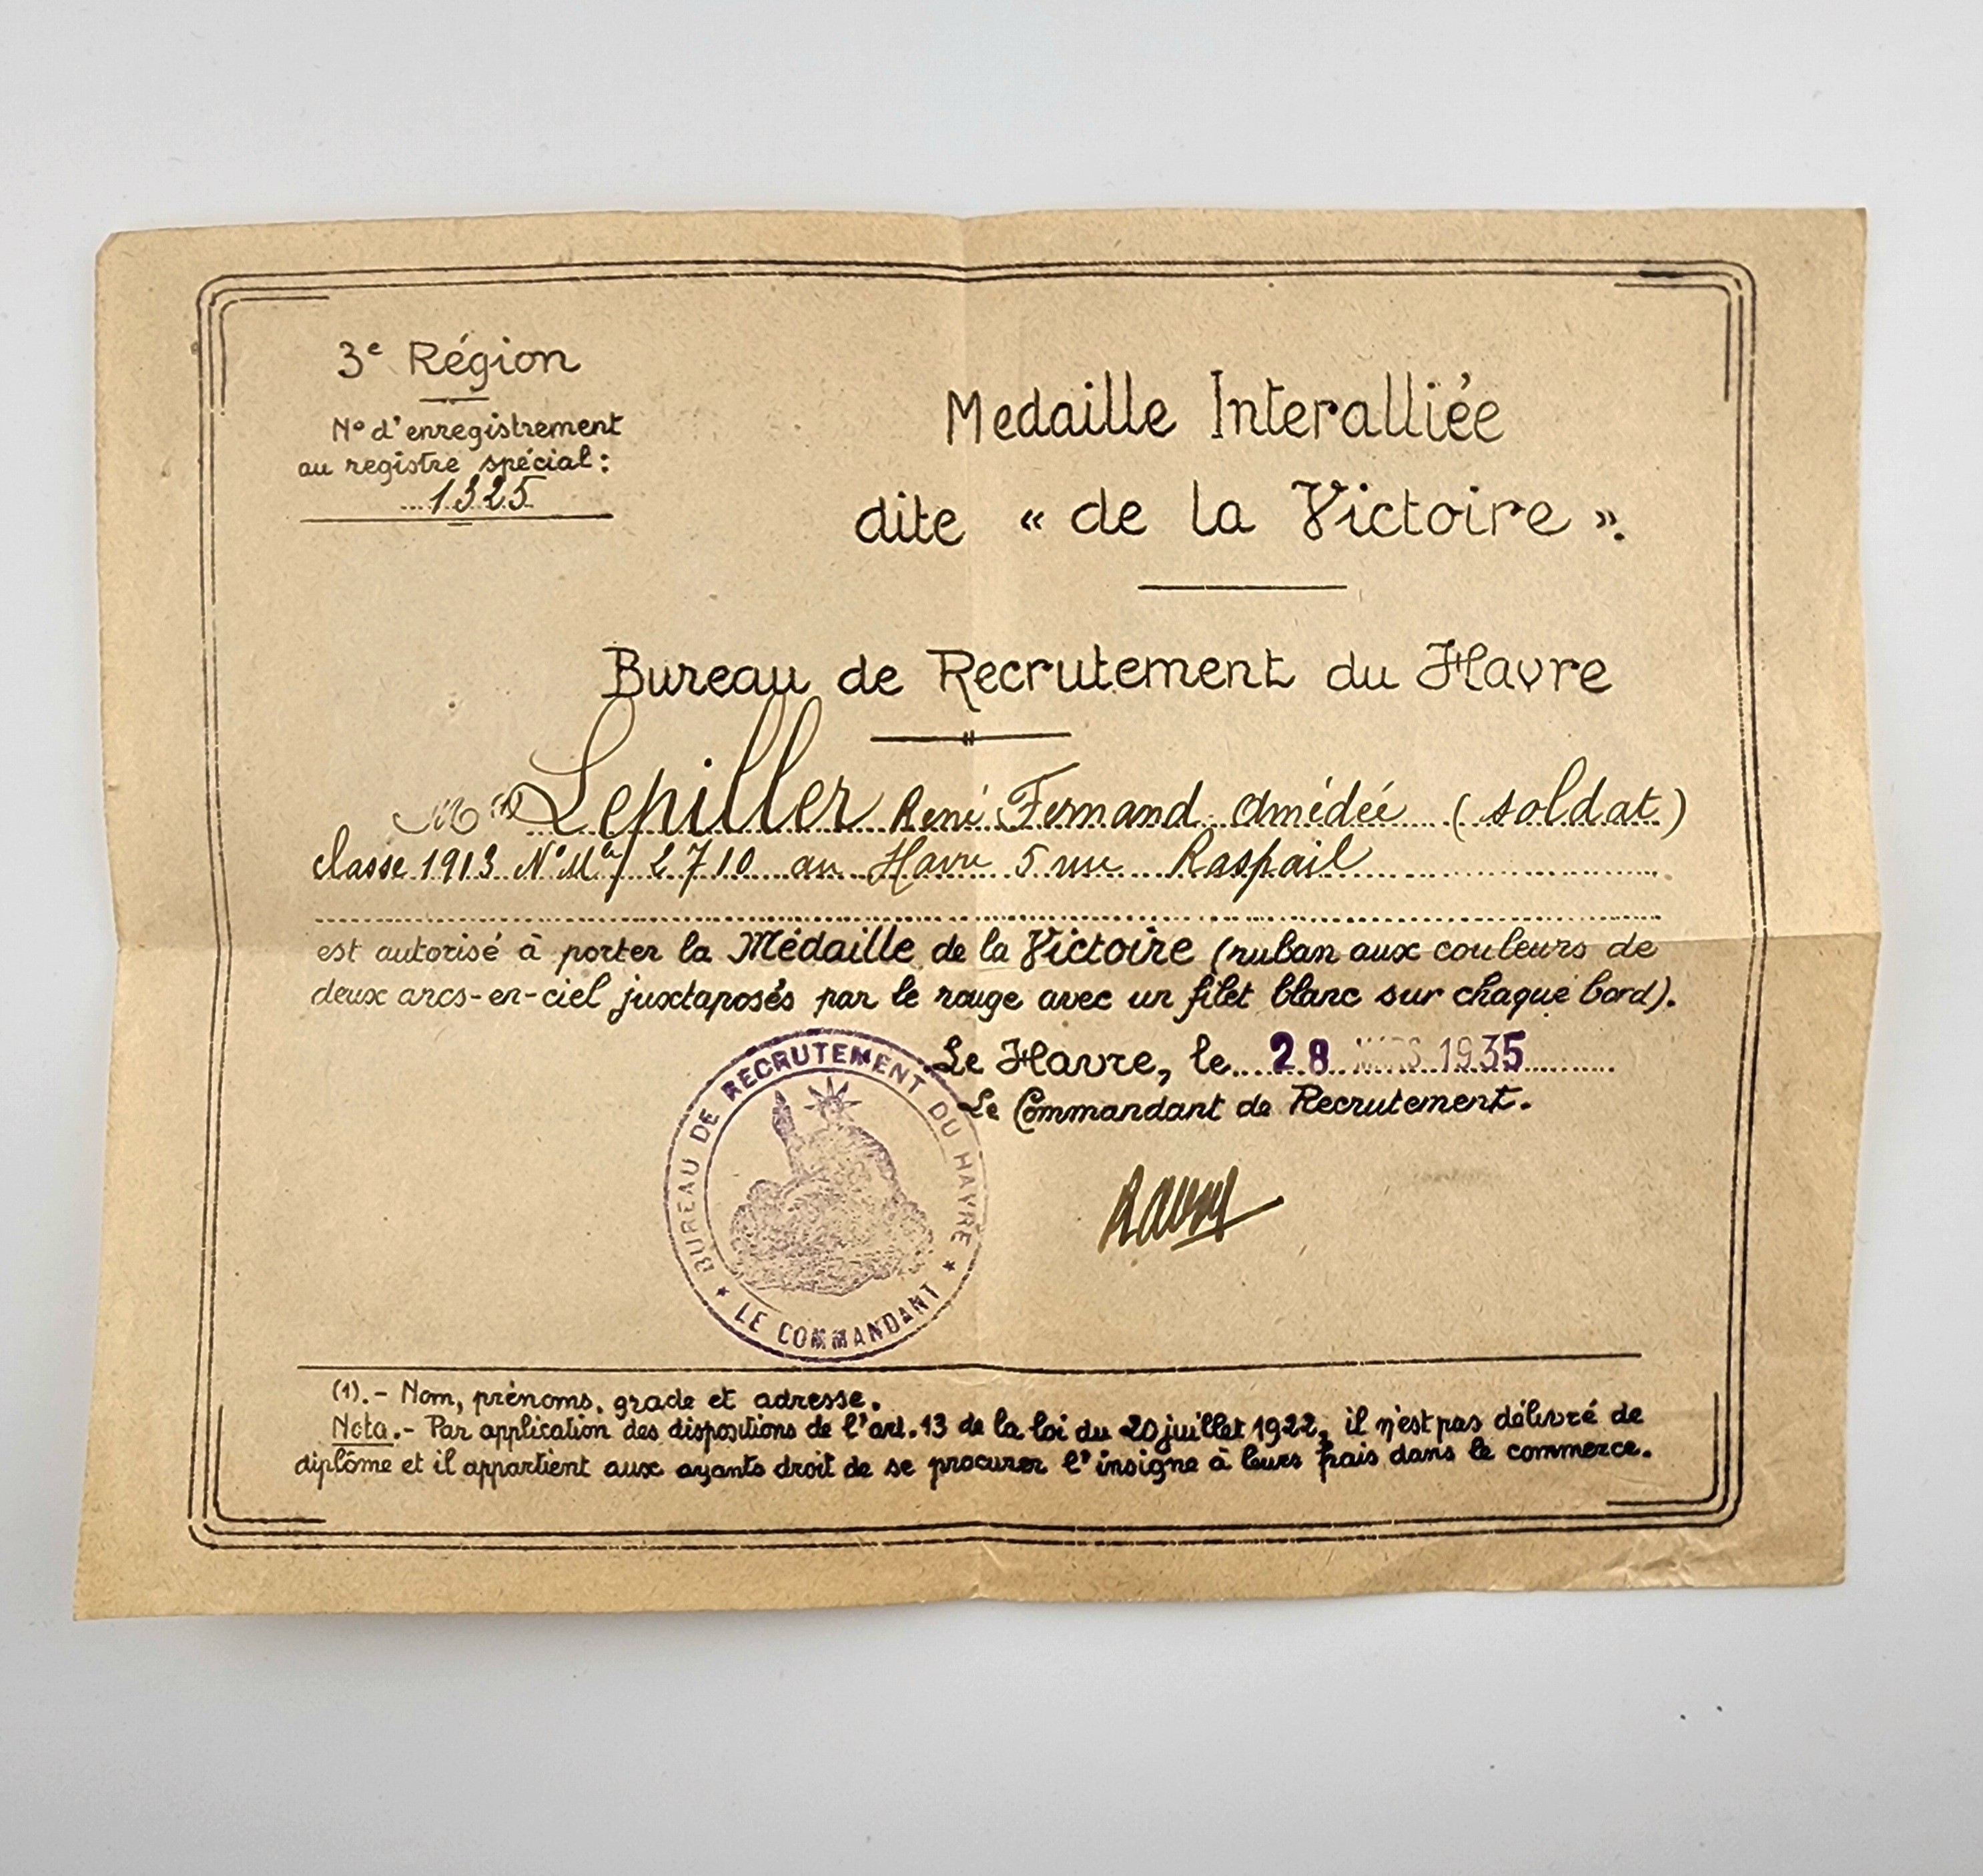 3e Région
No d'enregistrement
au registre spécial:
1325
Medaille Interalliée
dite « de la Victoire ».
Bureau de Recrutement du Havre
M (1) Lepiller René Fernand Amédée (soldat)
classe 1913 No Mle 2710 au Havre 5 rue Raspail
est autorisé à porter la Médaille de la Victoire (ruban aux couleurs de
deux arcs-en-ciel juxtaposés par le rouge avec un filet blanc sur chaque bord).
Le Havre, le 28 MARS 1935
Le Commandant de Recrutement.
BUREAU DE RECRUTEMENT DU HAVRE
* LE COMMANDANT *
(1).- Nom, prénoms, grade et adresse.
Nota.- Par application des dispositions de l'art.13 de la loi du 20 juillet 1922, il n'est pas délivré de
diplôme et il appartient aux ayants droit de se procurer l'insigne à leurs frais dans le commerce.